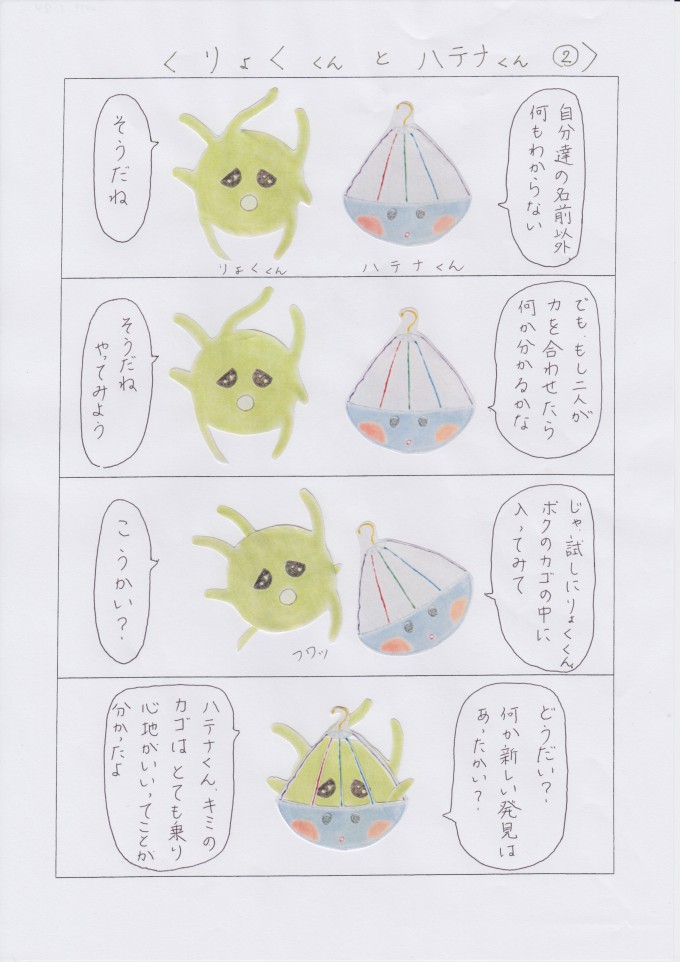 〈 りょくくん と ハテナくん ② 〉
自分達の名前以外、
何もわからない
そうだね
りょくくん
ハテナくん
でも、もし二人が
力を合わせたら
何か分かるかな
そうだね
やってみよう
じゃ、試しにりょくくん、
ボクのカゴの中に
入ってみて
こうかい？
フワッ
どうだい？
何か新しい発見は
あったかい？
ハテナくん、キミの
カゴは とても乗り
心地がいいってことが
分かったよ